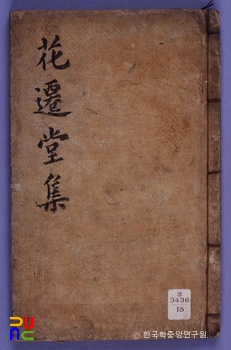 花遷堂集
3436
16
© 한국학중앙연구원